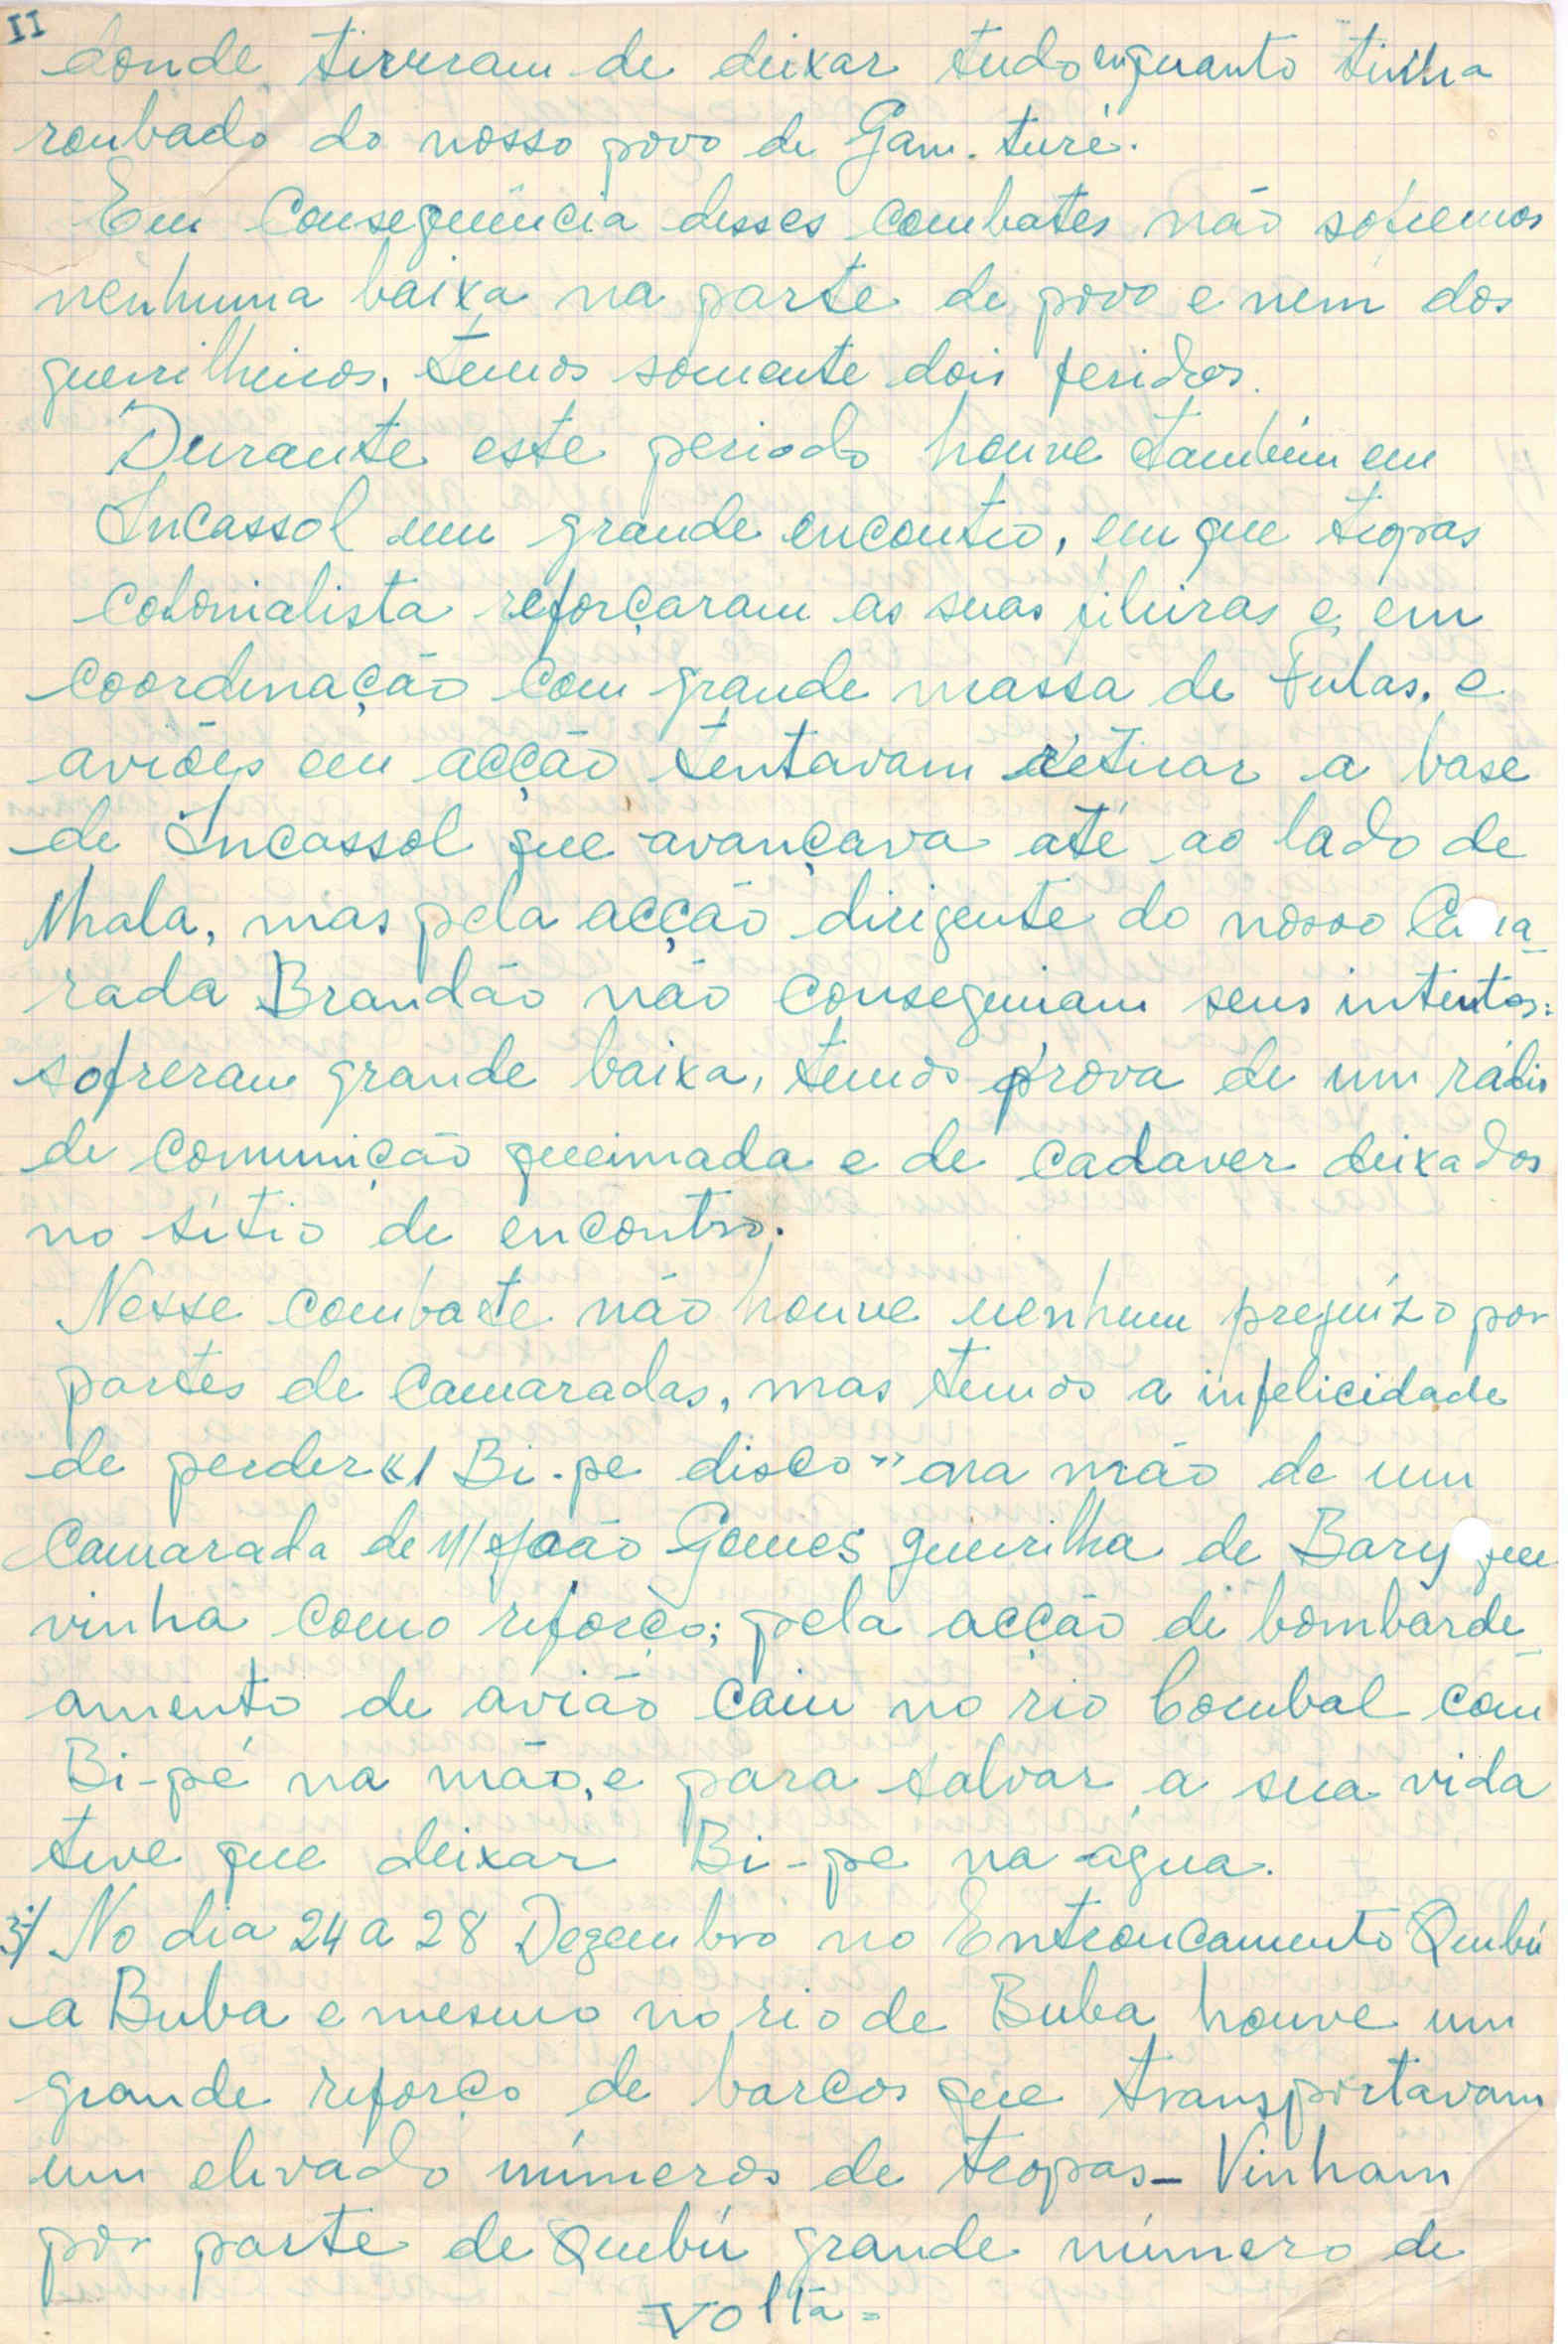 II
donde, tiveram de deixar tudo enquanto tinha
roubado do nosso povo de Gam. turé.
Em Consequência desses combates não sofremos
nenhuma baixa na parte de povo e nem dos
guerrilheiros, temos somente dois feridos.
Durante este periodo houve também em
Incassol um grande encontro, em que tropas
colonialista reforçaram as suas fileiras e, em
coordenação com grande massa de Fulas, e
aviões em acção tentavam retirar a base
de Incassol que avançava até ao lado de
Nhala, mas pela acção dirigente do nosso Ca
rada Brandão não conseguiam seus intentos:
sofreram grande baixa, temos prova de um rádio
de comunição queimada e de cadaver deixados
no sítio de encontro.
Nesse combate não houve nenhum prejuízo por
partes de Camaradas, mas temos a infelicidade
de perder «1 Bi-pe disco» na mão de um
Camarada de João Gomes guerrilha de Bary que
vinha como reforço; pela acção de bombarde
amento de avião caiu no rio Combal com
Bi-pé na mão, e para salvar a sua vida
teve que deixar Bi-pe na água.
3º/ No dia 24 a 28 Dezembro no Entroncamento Quebú
a Buba e mesmo no rio de Buba houve um
grande reforço de barcos que transportavam
um elevado números de tropas - Vinham
por parte de Quebú grande número de
= volta =